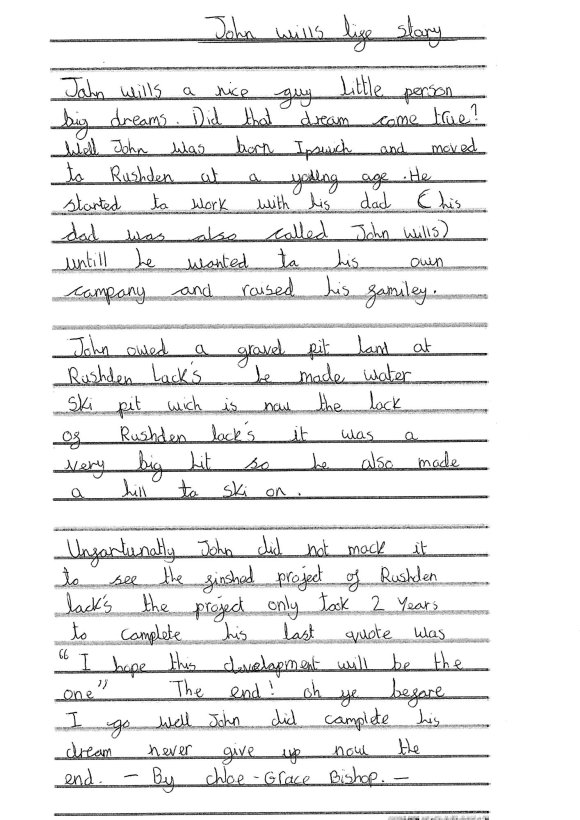 John wills life story
John wills a nice guy little person
big dreams. Did that dream come true?
Well John was born Ipswich and moved
to Rushden at a young age. He
started to work with his dad (his
dad was also called John wills)
untill he wanted to his own
company and raised his familey.
John owed a gravel pit land at
Rushden Lack's he made water
ski pit wich is now the lack
of Rushden lack's it was a
very big hit so he also made
a hill to ski on.
Unfortunatly John did not mack it
to see the finshad project of Rushden
lack's the project only took 2 years
to complete his last quote was
"I hope this development will be the
one" The end! oh ye before
I go well John did complete his
dream never give up now the
end. - By chloe - Grace Bishop. -